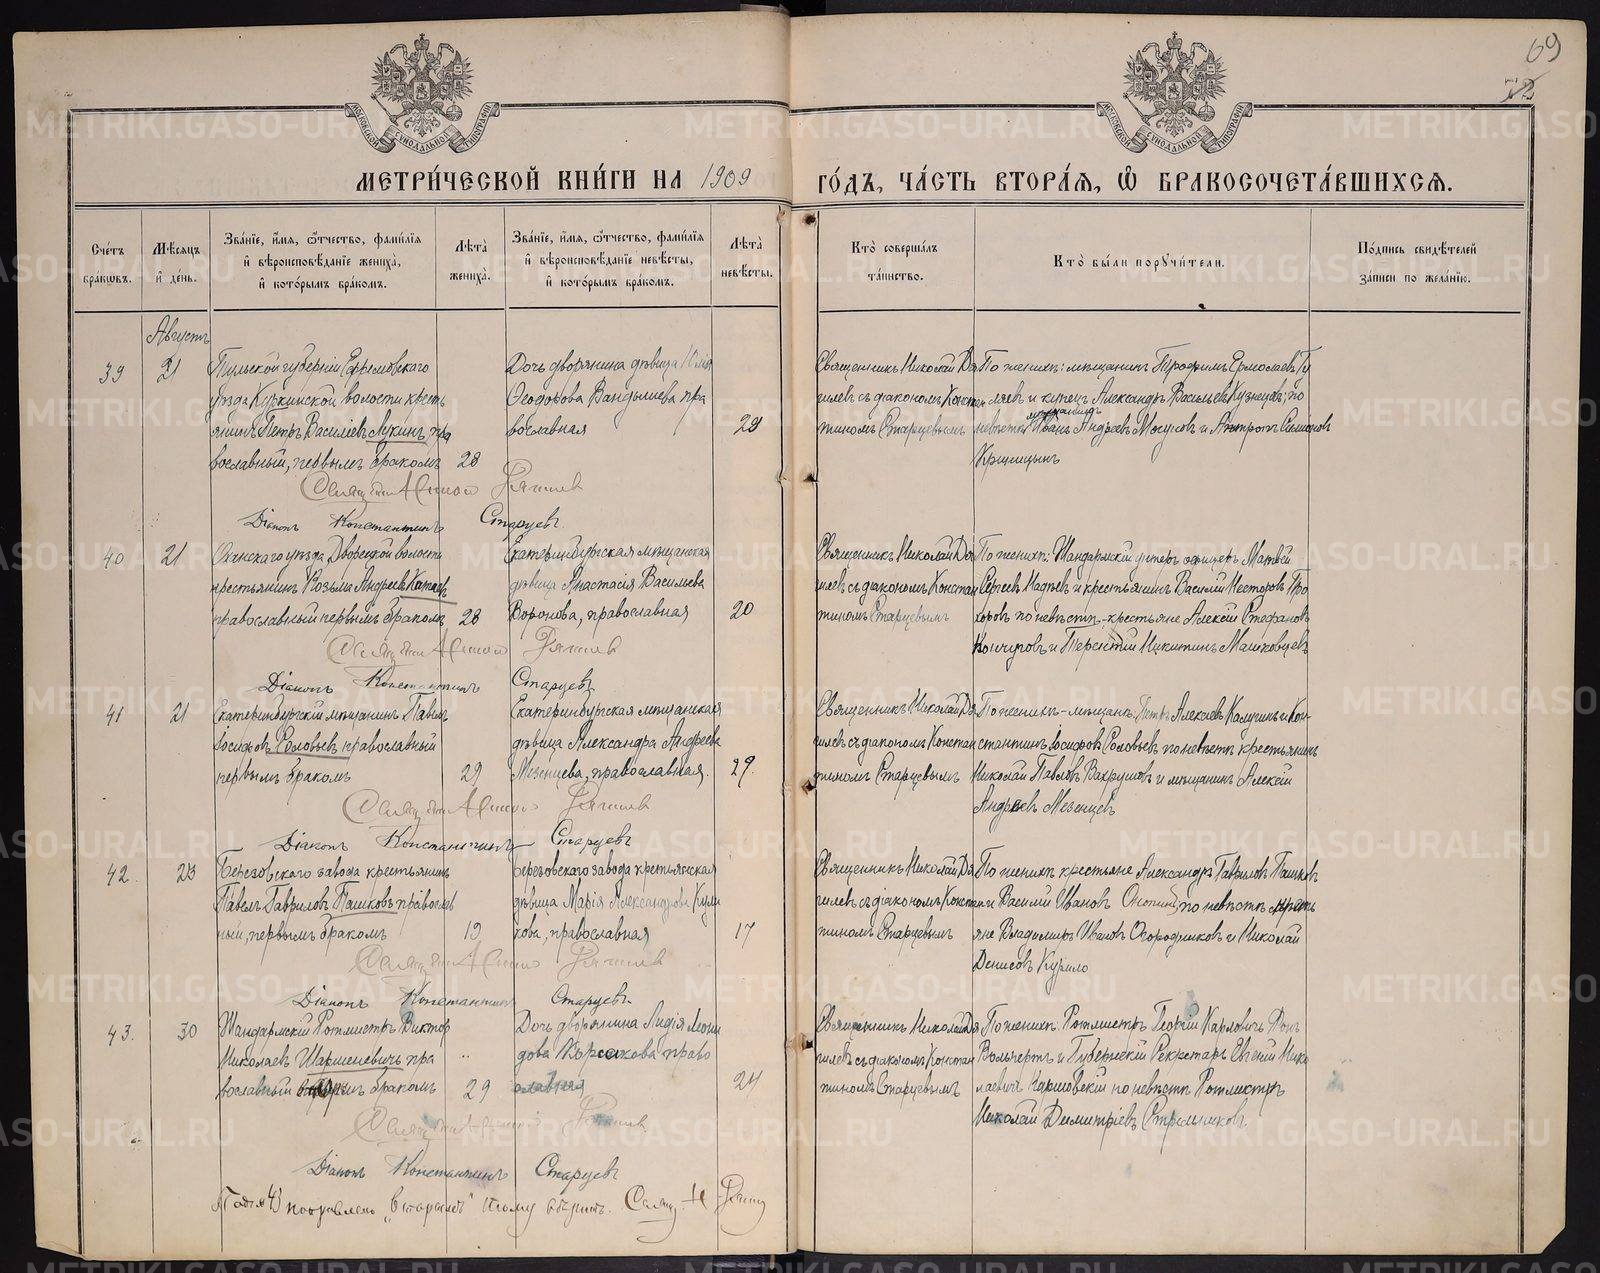 69
72
МОСКОВСКОЙ СѴНОДАЛЬНОЙ ТИПОГРАФІИ
МОСКОВСКОЙ СѴНОДАЛЬНОЙ ТИПОГРАФІИ
МЕТРИ́ЧЕСКОЙ КНИ́ГИ НА 1909 ГО́ДЪ, ЧА́СТЬ ВТОРА́Я, Ѽ БРАКОСОЧЕТА́ВШИХСЯ.
Сче́тъ бра́кѡвъ.
Мѣ́сяцъ и҆ де́нь.
Зва́нїе, и҆́мя, ѻ҆́тчество, фами́лїя и҆ вѣроисповѣ́данїе жениха̀, и҆ кото́рымъ бра́комъ.
Лѣта̀ жениха̀.
Зва́нїе, и҆́мя, ѻ҆́тчество, фами́лїя и҆ вѣроисповѣ́данїе невѣ́сты, и҆ кото́рымъ бра́комъ.
Лѣта̀ невѣ́сты.
Кто̀ соверша́лъ та́инство.
Кто̀ бы́ли поручи́тели.
По́дпись свидѣ́телей за́писи по жела́нїю.
Августъ
39
21
Тульской губерніи Ефремовскаго
уѣзда Куркинской волости кресть
янинъ Петръ Василіевъ Лукинъ, пра
вославный, первымъ бракомъ
28
Дочь дворянина дѣвица Юлія
Ѳеодорова Вандышева пра
вославная
28
Священникъ Николай Дя
гилевъ съ діакономъ Констан
тиномъ Старцевымъ
По женихѣ: мѣщанинъ Трофимъ Ермолаевъ Гу
ляевъ и купецъ Александръ Васильевъ Кузнецовъ; по
мѣщанинъ
невѣстѣ Иванъ Андреевъ Мокусовъ и Антропъ Симоновъ
Крашицынъ
Священникъ Николай Дягилев
Діаконъ Константинъ Старцевъ
40
21
Оханскаго уѣзда, Дворецкой волости
крестьянинъ Козьма Андреевъ Катаевъ
православный первымъ бракомъ
28
Екатеринбургская мѣщанская
дѣвица Анастасія Васильева
Воронова, православная
20
Священникъ Николай Дя
гилевъ съ діакономъ Констан
тиномъ Старцевымъ
По женихѣ: Жандармскій унтеръ офицеръ Матвѣй
Сергѣевъ Надѣевъ и крестьянинъ Василій Несторовъ Про
хоровъ по невѣстѣ-крестьяне Алексій Стефановъ
и Терентій Никитинъ Машковцевъ
Священникъ Николай Дягилев
Діаконъ Константинъ Старцевъ
41
21
Екатеринбургскій мѣщанинъ Павелъ
Іосифовъ Соловьевъ, православный
первымъ бракомъ
29
Екатеринбургская мѣщанская
дѣвица Александра Андреева
Мезенцева, православная.
29.
Священникъ Николай Дя
гилевъ съ діакономъ Констан
тиномъ Старцевымъ
По женихѣ-мѣщане, Петръ Алексѣевъ Калугинъ и Кон
стантинъ Іосифовъ Соловьевъ по невѣстѣ крестьянинъ
Николай Павловъ Вахрушовъ и мѣщанинъ Алексій
Андреевъ Мезенцевъ
Священникъ Николай Дягилев
Діаконъ Константинъ Старцевъ
42.
23
Березовскаго завода крестьянинъ
Павелъ Гавриловъ Пашковъ православ
ный, первымъ бракомъ
19
Березовскаго завода крестьянская
дѣвица Марія Александрова Кули
кова, православная
17
Священникъ Николай Дя
гилевъ съ діакономъ Констан
тиномъ Старцевымъ
По женихѣ крестьяне Александръ Гавриловъ Пашковъ
и Василій Ивановъ по невѣстѣ кресть
яне Владиміръ Ивановъ Огородниковъ и Николай
Денисовъ Курило
Священникъ Николай Дягилев
Діаконъ Константинъ Старцевъ
43.
30
Жандармскій Ротмистръ Виктор
Николаевъ Шаршеневичъ пра
вославный вторымъ бракомъ
29
Дочь дворянина Лидія Леони
дова Корсакова право
славная
24
Священникъ Николай Дя
гилевъ съ діакономъ Констан
тиномъ Старцевымъ
По женихѣ: Ротмистръ Георгій Карловичъ Фонъ
Вольчертъ и Губернскій Секретарь Евгеній Нико
лаевичъ Каршовскій по невѣстѣ Ротмистръ
Николай Димитріевъ Стрѣльниковъ.
Священникъ Николай Дягилев
Діаконъ Константинъ Старцевъ
43 поправлено "вторымъ" тому вѣрить. Свящ. Н. Дягил